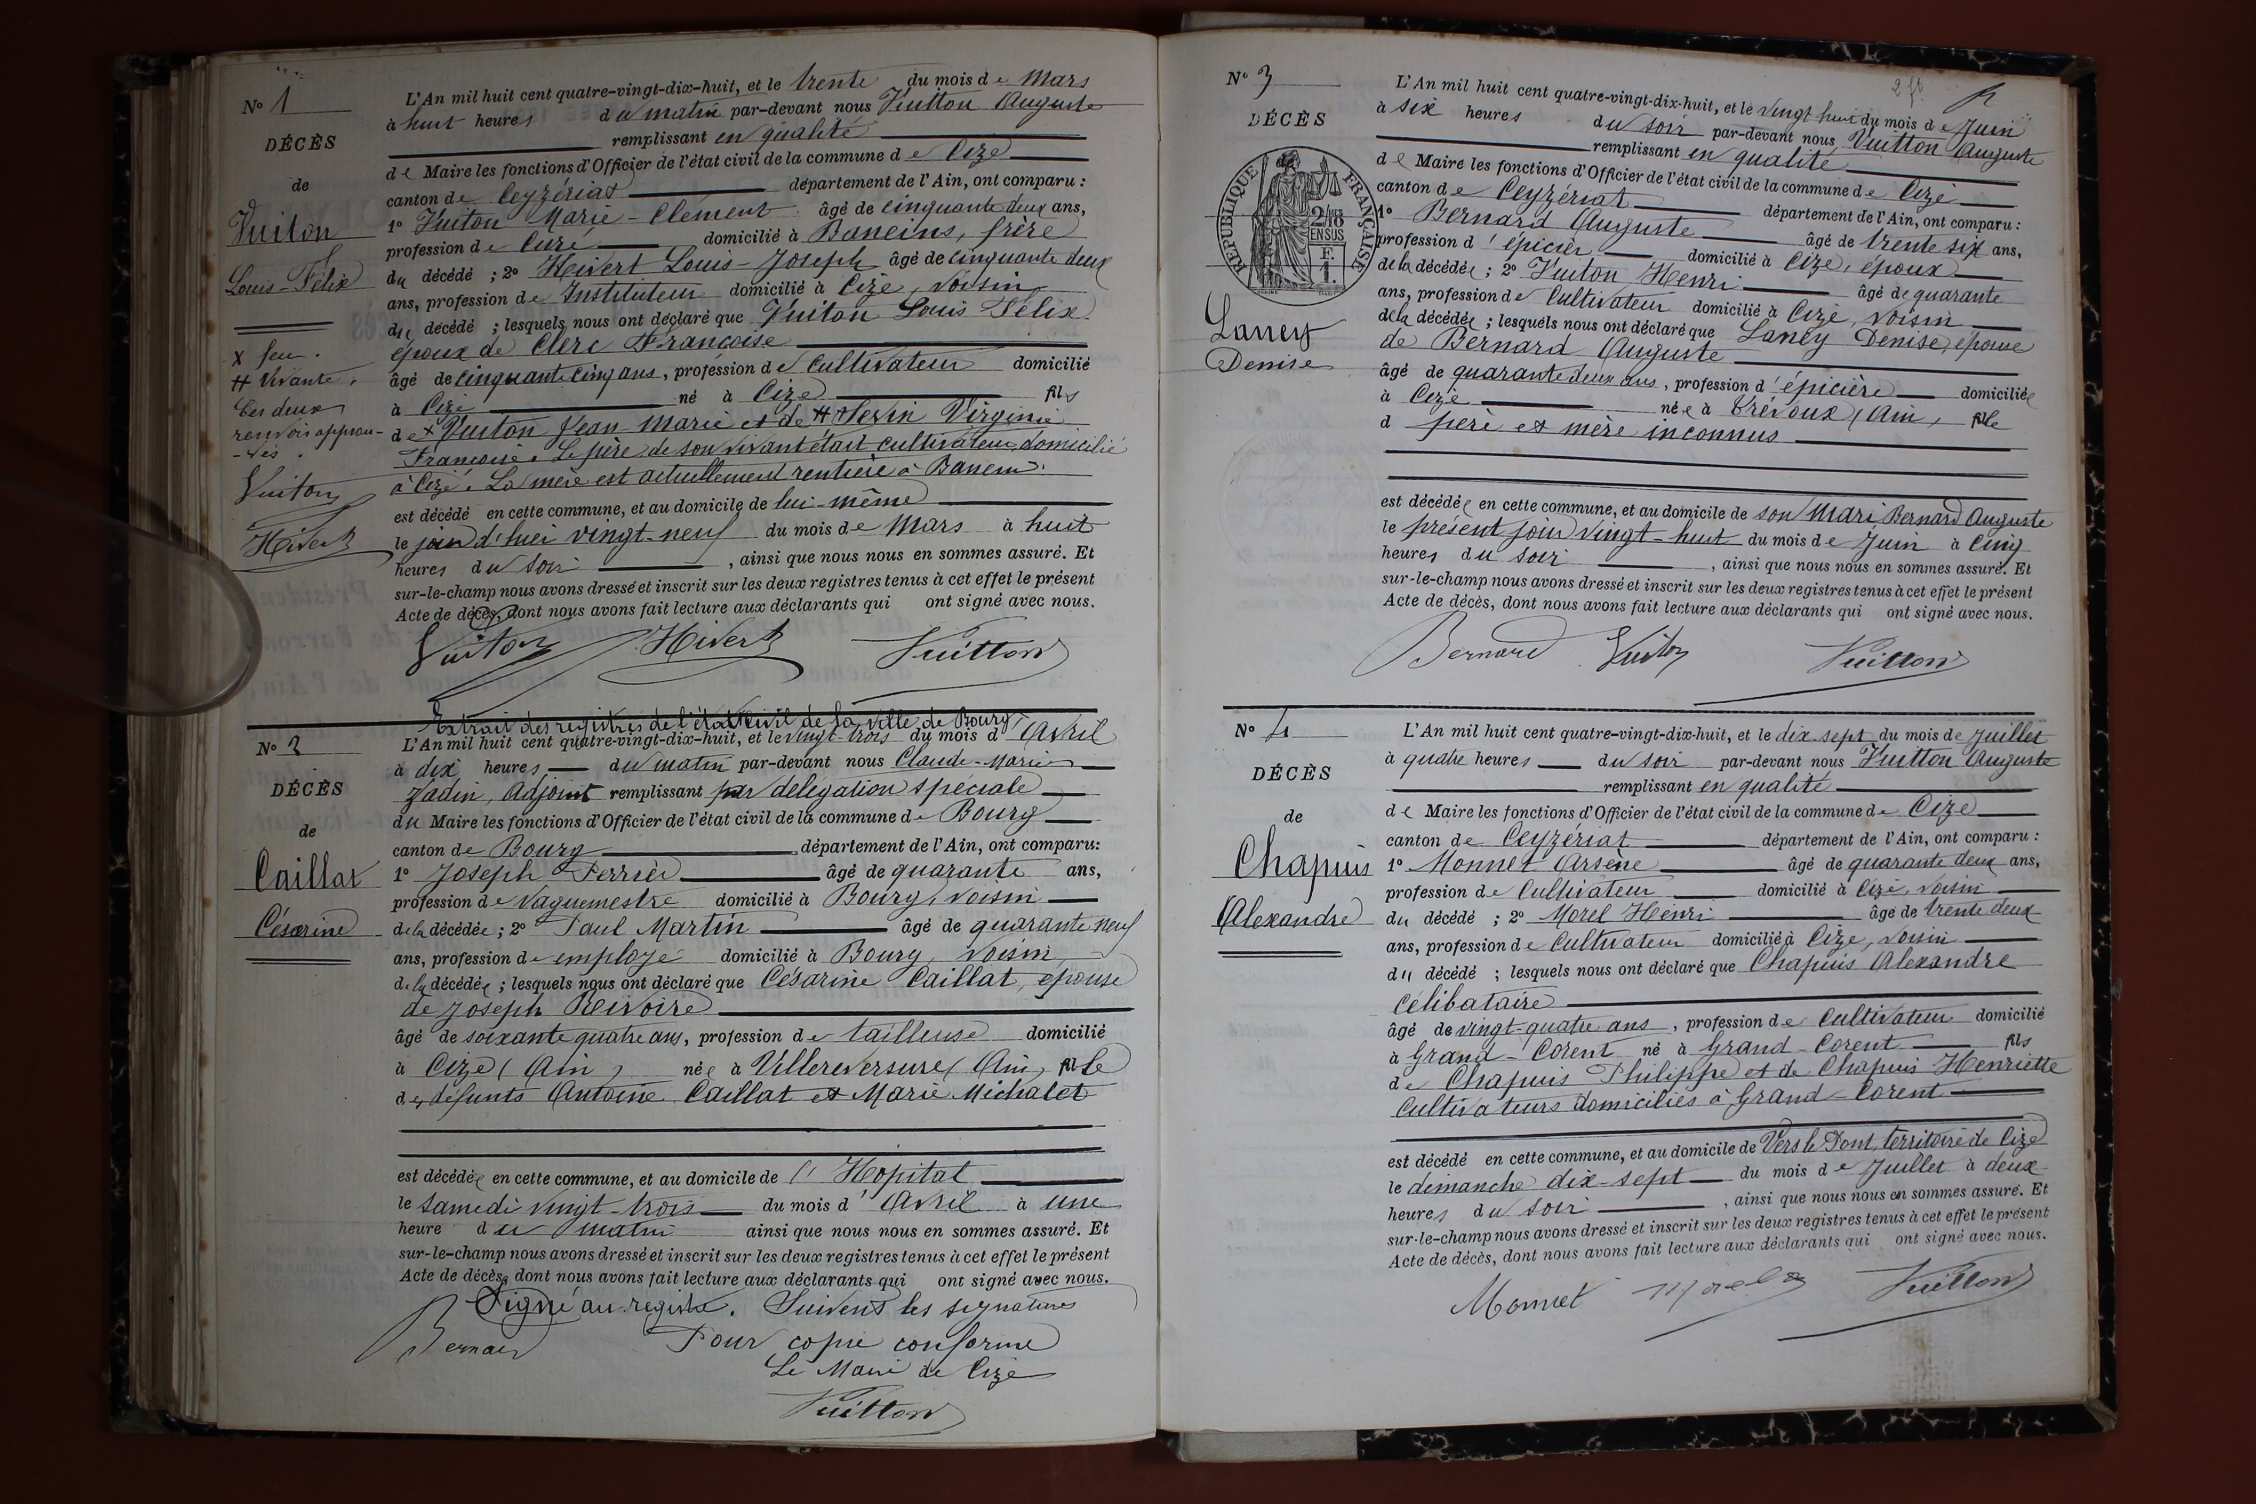 N° 1
DÉCÈS
de
Vuiton
Louis-Félix
x feu.
# Vivante.
Ces deux
renvois approu-
-vés.
Vuiton
Hivert
L'An mil huit cent quatre-vingt-dix-huit, et le trente du mois de Mars
à huit heures du matin par-devant nous Vuitton Auguste
remplissant en qualité
de Maire les fonctions d'Officier de l'état civil de la commune de Cize
canton de Ceyzériat département de l'Ain, ont comparu :
1° Vuiton Marie-Clément âgé de cinquante deux ans,
profession de Curé domicilié à Baneins, frère
du décédé ; 2° Hivert Louis-Joseph âgé de cinquante deux
ans, profession de Instituteur domicilié à Cize, voisin
du décédé ; lesquels nous ont déclaré que Vuiton Louis Félix
époux de Clerc Françoise
âgé de cinquante cinq ans, profession de Cultivateur domicilié
à Cize né à Cize fils
de x Vuiton Jean Marie et de # Virginie
Françoise. Le père de son vivant était cultivateur domicilié
à Cize. La mère est actuellement rentière à Baneins.
est décédé en cette commune, et au domicile de lui-même
le jour d'hier vingt-neuf du mois de Mars à huit
heures du soir, ainsi que nous nous en sommes assuré. Et
sur-le-champ nous avons dressé et inscrit sur les deux registres tenus à cet effet le présent
Acte de décès, dont nous avons fait lecture aux déclarants qui ont signé avec nous.
Vuiton Hivert Vuitton
Extrait des registres de l'état civil de la ville de Bourg
N° 2
DÉCÈS
de
Caillat
Césarine
L'An mil huit cent quatre-vingt-dix-huit, et le vingt-trois du mois d'Avril
à dix heures du matin par-devant nous Claude-Marie
Jadin, Adjoint remplissant par délégation spéciale
du Maire les fonctions d'Officier de l'état civil de la commune de Bourg
canton de Bourg département de l'Ain, ont comparu:
1° Joseph Perrier âgé de quarante ans,
profession de Vaguemestre domicilié à Bourg, voisin
de la décédée; 2° Paul Martin âgé de quarante neuf
ans, profession de employé domicilié à Bourg, voisin
de la décédée ; lesquels nous ont déclaré que Césarine Caillat, épouse
de Joseph Reivoire
âgé de soixante quatre ans, profession de tailleuse domicilié
à Cize (Ain) née à Villereversure (Ain) fille
des défunts Antoine Caillat et Marie Michalet
est décédée en cette commune, et au domicile de l'Hôpital
le samedi vingt-trois du mois d'Avril à une
heure du matin ainsi que nous nous en sommes assuré. Et
sur-le-champ nous avons dressé et inscrit sur les deux registres tenus à cet effet le présent
Acte de décès, dont nous avons fait lecture aux déclarants qui ont signé avec nous.
Signé au registre. Suivent les signatures
Bernard Pour copie conforme
Le Maire de Cize
Vuitton
N° 3
DÉCÈS
de
RÉPUBLIQUE FRANÇAISE
2/10
EN SUS
F.
1.
Laney
Denise
L'An mil huit cent quatre-vingt-dix-huit, et le vingt huit du mois de Juin
à six heures du soir par-devant nous Vuitton Auguste
remplissant en qualité
de Maire les fonctions d'Officier de l'état civil de la commune de Cize
canton de Ceyzériat département de l'Ain, ont comparu :
1° Bernard Auguste âgé de trente six ans,
profession d'épicier domicilié à Cize, époux
de la décédée ; 2° Vuiton Henri âgé de quarante
ans, profession de Cultivateur domicilié à Cize, voisin
de la décédée ; lesquels nous ont déclaré que Laney Denise, épouse
de Bernard Auguste
âgé de quarante deux ans, profession d'épicière domiciliée
à Cize née à Trévoux (Ain) fille
d père et mère inconnus
est décédée en cette commune, et au domicile de son Mari Bernard Auguste
le présent jour vingt-huit du mois de Juin à cinq
heures du soir, ainsi que nous nous en sommes assuré. Et
sur-le-champ nous avons dressé et inscrit sur les deux registres tenus à cet effet le présent
Acte de décès, dont nous avons fait lecture aux déclarants qui ont signé avec nous.
Bernard Vuiton Vuitton
N° 4
DÉCÈS
de
Chapuis
Alexandre
L'An mil huit cent quatre-vingt-dix-huit, et le dix-sept du mois de Juillet
à quatre heures du soir par-devant nous Vuitton Auguste
remplissant en qualité
de Maire les fonctions d'Officier de l'état civil de la commune de Cize
canton de Ceyzériat département de l'Ain, ont comparu :
1° Monnet Arsène âgé de quarante deux ans,
profession de Cultivateur domicilié à Cize, voisin
du décédé ; 2° Morel Henri âgé de trente deux
ans, profession de Cultivateur domicilié à Cize, voisin
du décédé ; lesquels nous ont déclaré que Chapuis Alexandre
célibataire
âgé de vingt-quatre ans, profession de Cultivateur domicilié
à Grand-Corent né à Grand-Corent fils
de Chapuis Philippe et de Chapuis Henriette
Cultivateurs domiciliés à Grand-Corent
est décédé en cette commune, et au domicile de Vers le Pont, territoire de Cize
le dimanche dix-sept du mois de Juillet à deux
heures du soir, ainsi que nous nous en sommes assuré. Et
sur-le-champ nous avons dressé et inscrit sur les deux registres tenus à cet effet le présent
Acte de décès, dont nous avons fait lecture aux déclarants qui ont signé avec nous.
Monnet Morel Vuitton